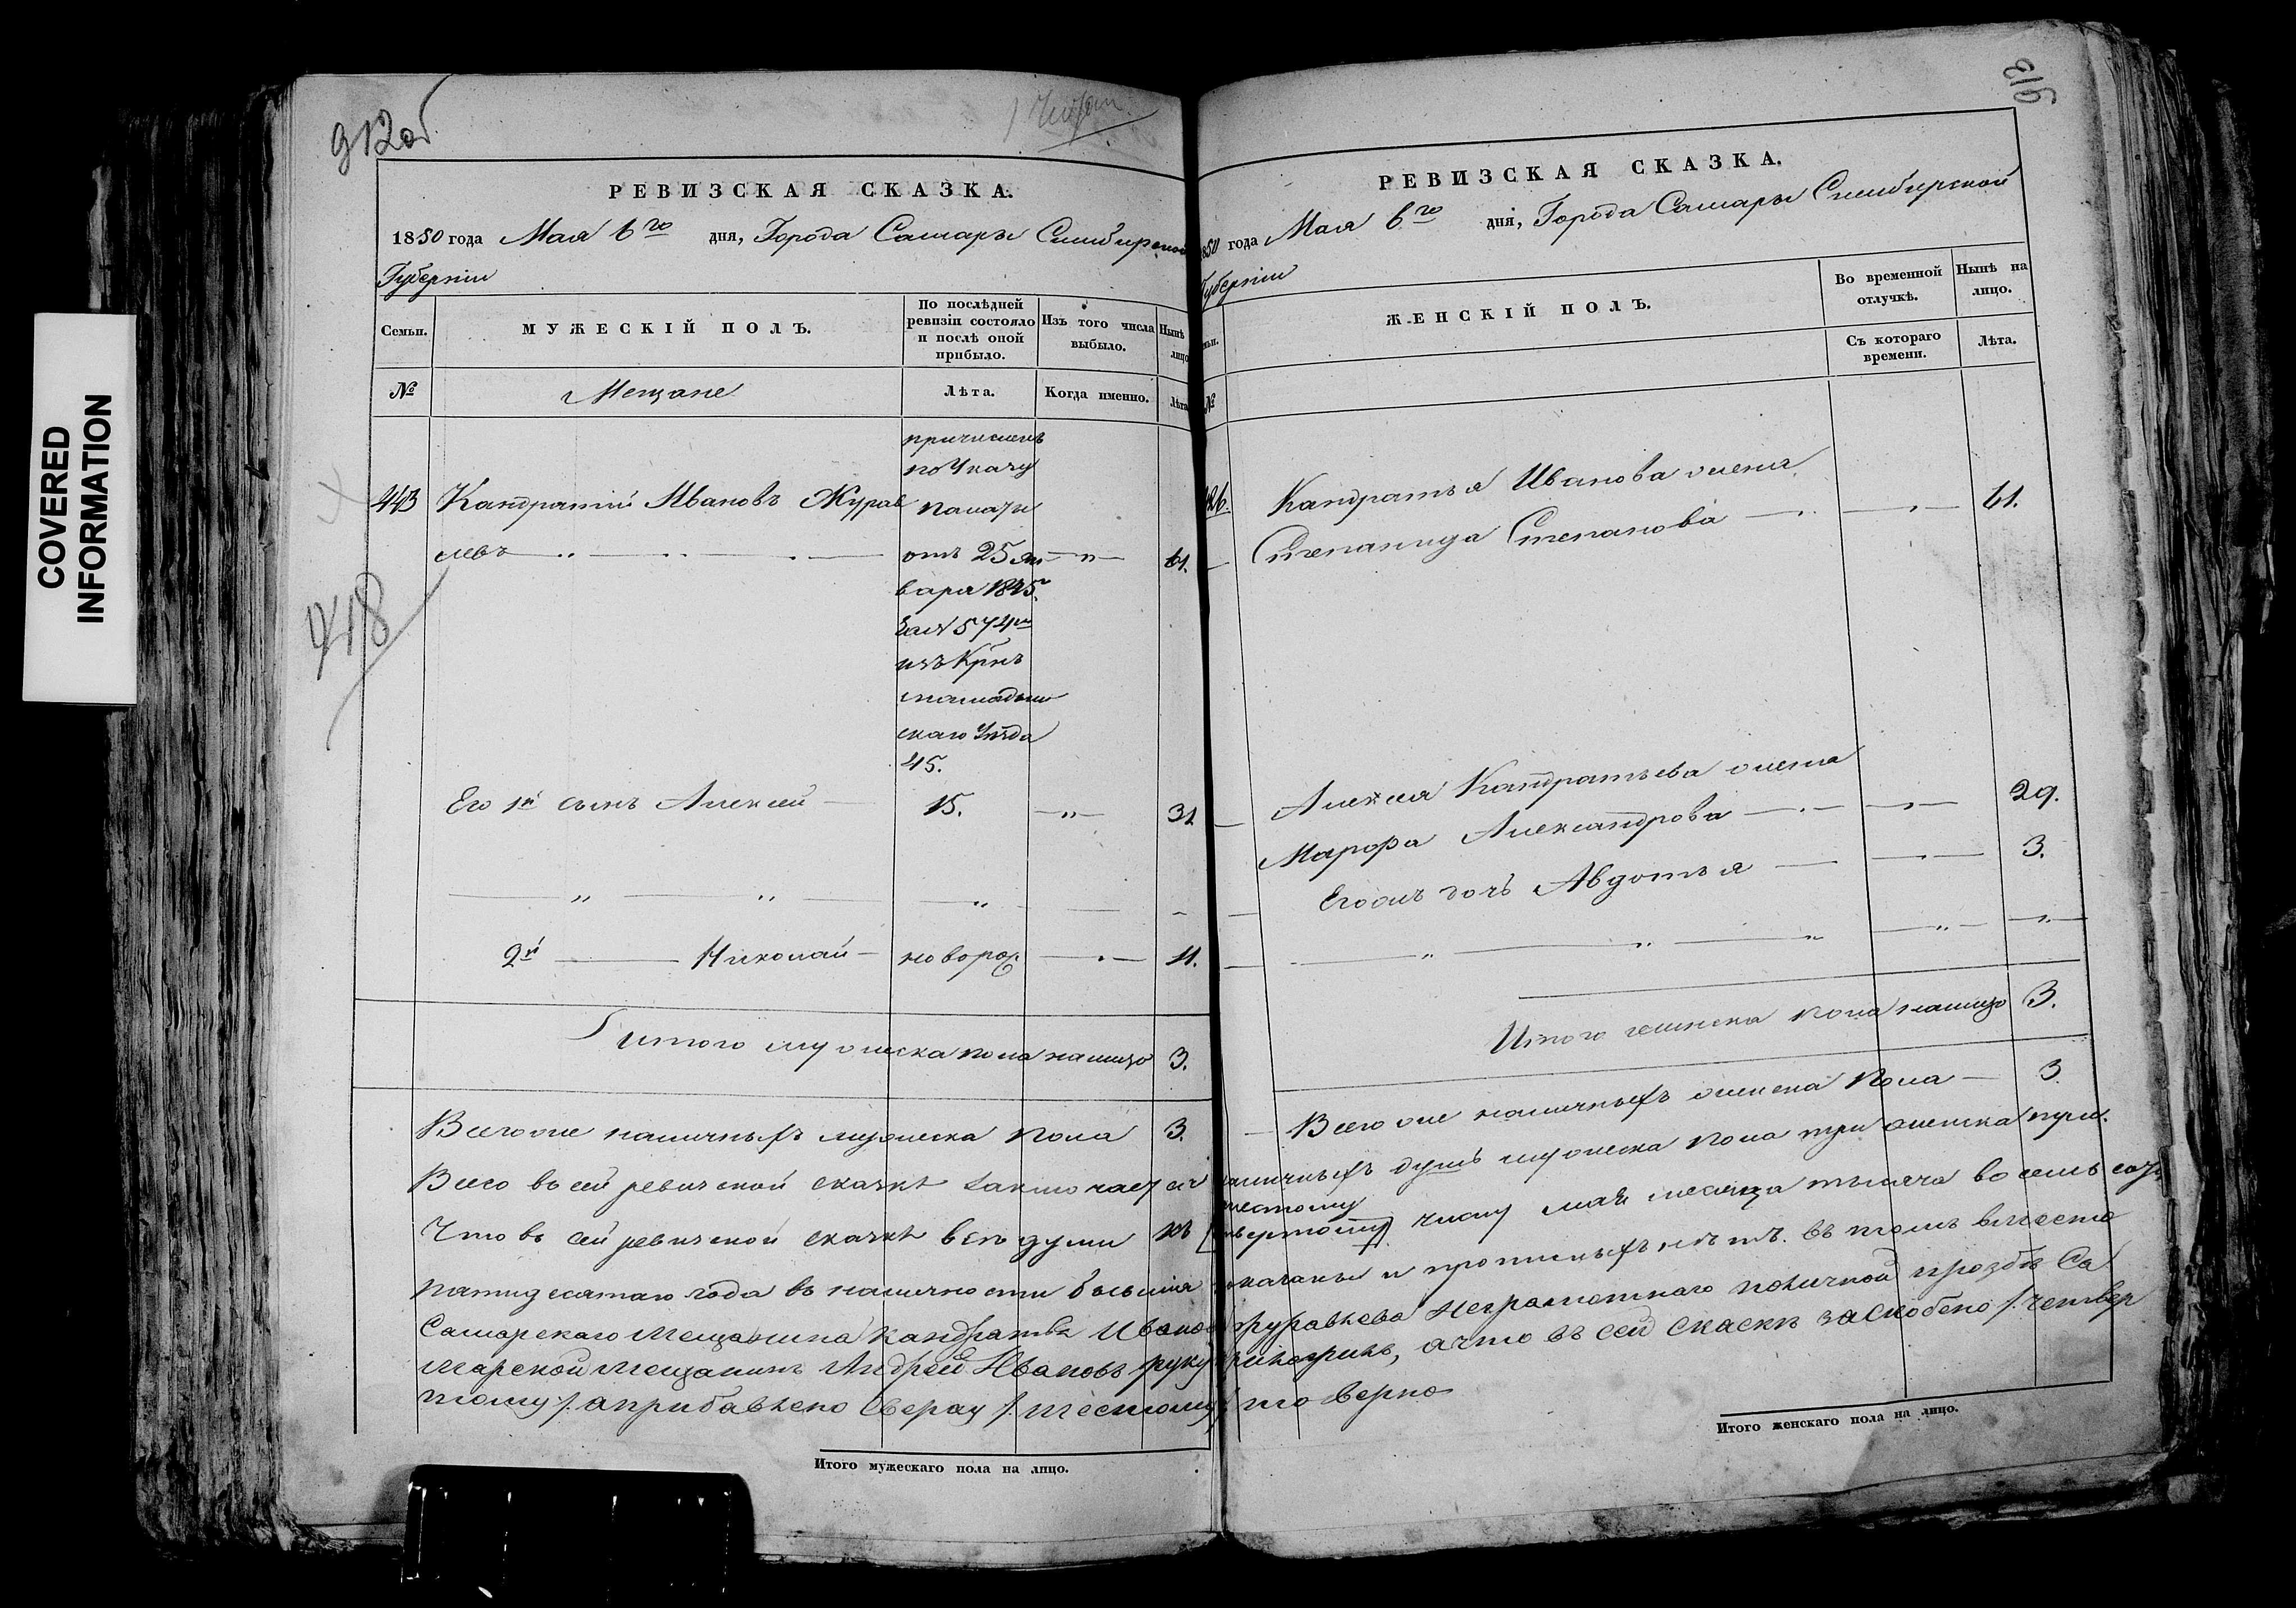 COVERED
INFORMATION
912об
РЕВИЗСКАЯ СКАЗКА.
1850 года Мая 6го дня, Города Самары Симбирской
Губернии
Семьи.
МУЖЕСКІЙ ПОЛЪ.
По послѣдней
ревизіи состояло
и послѣ оной
прибыло.
Изъ того числа
выбыло.
Нынѣ
лицо
№
Мещане
Лѣта.
Когда именно.
Лѣта
причисленъ
по Указу
443 Кандратий Ивановъ Журав палаты
левъ отъ 25 Ян 61.
варя 1845.
изъ Крнъ
скаго Уезда
45.
948
Его 1й сынъ Алексей 15. 31
2й Николай новорож 11.
Итого мужеска пола налицо 3.
Всего же наличныхъ мужеска пола 3.
Всего въ сей ревизской сказке заключается
Что въ сей ревизской сказке все души къ
пятидесятаго года въ наличности бывшия
Самарскаго Мещанина Кандратья Иванова
марской мещанинъ Андрей Ивановъ руку
тому /. а прибавлено сверху /. шестому /
Итого мужескаго пола на лицо.
913
РЕВИЗСКАЯ СКАЗКА.
1850 года Мая 6го дня, Города Самары Симбирской
Губернии
ЖЕНСКІЙ ПОЛЪ.
Во временной
отлучкѣ.
Нынѣ на
лицо.
Съ котораго
времени.
Лѣта.
№
Кандратья Иванова жена
Степанида Степанова 61.
Алексея Кандратьева жена
Марфа Александрова 29.
Его же дочь Авдотья 3.
Итого женска пола налицо 3.
Всего же наличныхъ женска пола 3.
наличныхъ душъ мужеска пола три женска три.
шестому
[четвертому] числу мая месяца тысяча восемь сотъ
показаны и прописныхъ нетъ. въ томъ вместо
Журавлева неграмотнаго по личной прозбе Са
приложилъ, а что въ сей скаске заскоблено /. четвер
то верно
Итого женскаго пола на лицо.